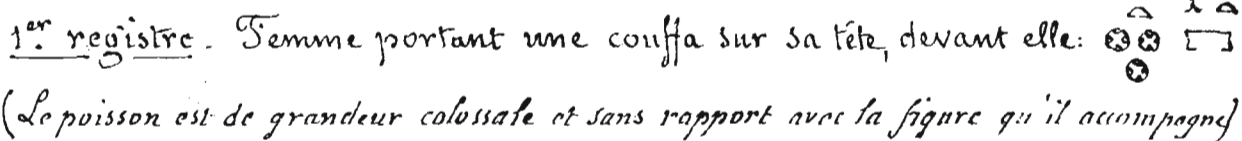 1er. registre. Femme portant une couffa sur sa tête, devant elle:
(Le poisson est de grandeur colossale et sans rapport avec la figure qu'il accompagne)